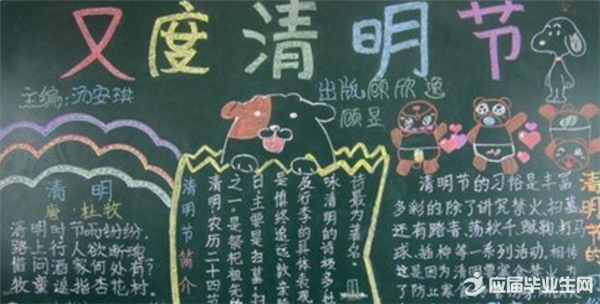 又度清明节
主编:汤安琪
出版 顾欣逸
顾昱
清明
唐·杜牧
清明时节雨纷纷
路上行人欲断魂
借问酒家何处有?
牧童遥指杏花村
清明节简介
清明,农历二十四节
之一。是祭祀祖先
日主要是扫墓、扫
是慎终追远、敦亲
及行孝的具体表现
咏清明的诗极多
诗最为著名。
清明节的习俗是丰富
多彩的除了讲究禁火、扫墓
还有踏青、荡秋千、蹴鞠、打马
球、插柳等一系列活动。相传
这是因为清明
了防止寒
清明节的
应届毕业生网